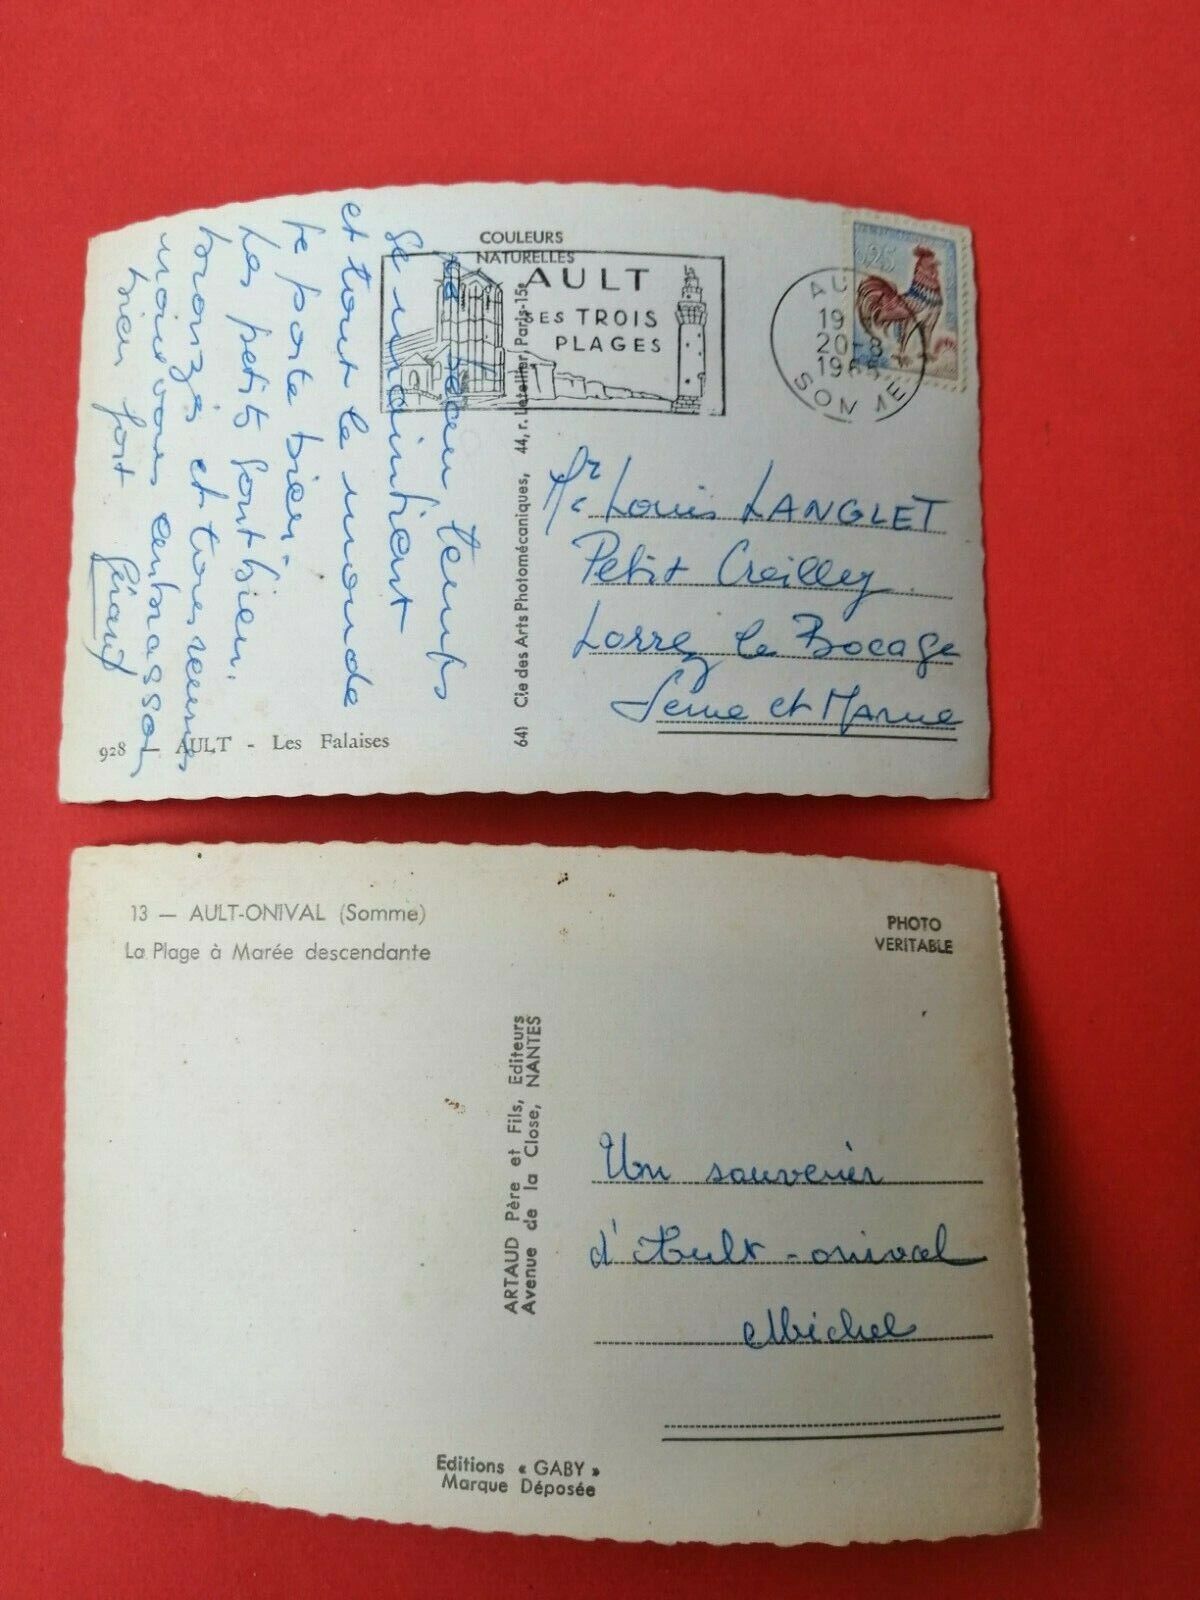 COULEURS
NATURELLES
AULT
SES TROIS
PLAGES
0,25
AU
19
20-8
1965
SOMME
Le beau temps
se maintient
et tout le monde
se porte bien.
Les petits sont bien
bronzés et tous réunis
nous vous embrassons
bien fort
Gérard
641 Cie des Arts Photomécaniques, 44, r. Letellier, Paris-15e
Mr Louis LANGLET
Petit Creilley
Lorrez le Bocage
Seine et Marne
928 — AULT - Les Falaises
13 — AULT-ONIVAL (Somme)
La Plage à Marée descendante
PHOTO
VERITABLE
ARTAUD Père et Fils, Editeurs
Avenue de la Close, NANTES
Un souvenir
d'Ault-onival
Michel
Editions « GABY »
Marque Déposée